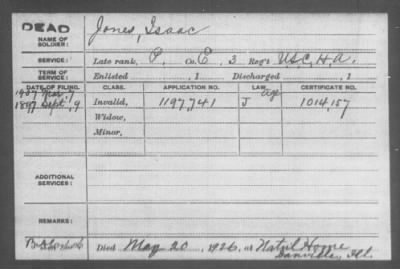 DEAD
NAME OF SOLDIER: Jones, Isaac
SERVICE: Late rank, P, Co. E, 3 Reg't U.S.C.H.A.
TERM OF SERVICE: Enlisted , 1 Discharged , 1
DATE OF FILING. CLASS. APPLICATION NO. LAW. CERTIFICATE NO.
age
1907 Mar. 7
1897 Sept. 9 Invalid, 1197,741 J 1014,157
Widow,
Minor,
ADDITIONAL SERVICES:
REMARKS:
Died May 20, 1926, at Nat'l Home
Danville, Ill.